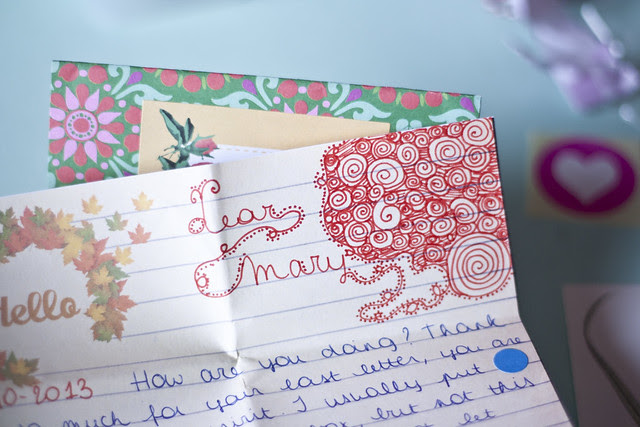 Dear
Mary
Hello
10-2013 How are you doing? Thank
much for your last letter, you are
I usually put
, but not this
let